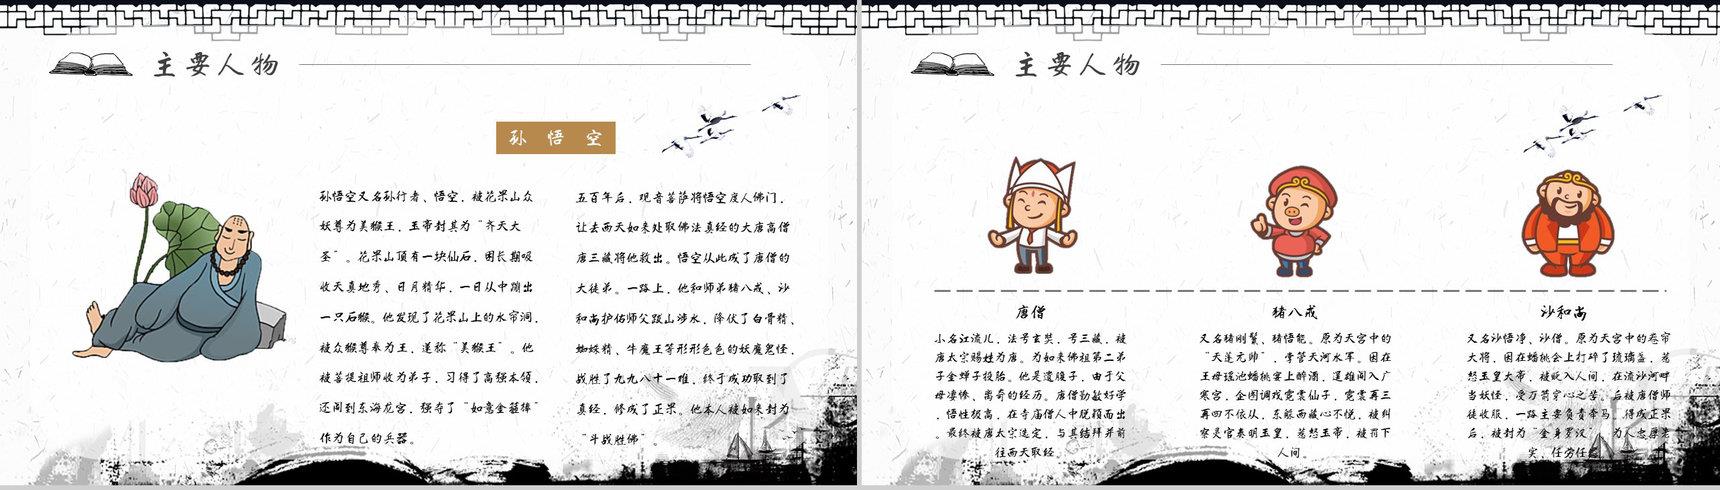 主要人物
孙悟空
孙悟空又名孙行者、悟空，被花果山众
妖尊为美猴王，玉帝封其为“齐天大
圣”。花果山顶有一块仙石，因长期吸
收天真地秀、日月精华，一日从中蹦出
一只石猴。他发现了花果山上的水帘洞，
被众猴尊奉为王，遂称“美猴王”。他
被菩提祖师收为弟子，习得了高强本领，
还闹到东海龙宫，强夺了“如意金箍棒”
作为自己的兵器。
五百年后，观音菩萨将悟空度入佛门，
让去西天如来处取佛法真经的大唐高僧
唐三藏将他救出。悟空从此成了唐僧的
大徒弟。一路上，他和师弟猪八戒、沙
和尚护佑师父跋山涉水，降伏了白骨精、
蜘蛛精、牛魔王等形形色色的妖魔鬼怪，
战胜了九九八十一难，终于成功取到了
真经，修成了正果。他本人被如来封为
“斗战胜佛”。
主要人物
唐僧
小名江流儿，法号玄奘，号三藏，被
唐太宗赐姓为唐。为如来佛祖第二弟
子金蝉子投胎。他是遗腹子，由于父
母凄惨、离奇的经历。唐僧勤敏好学
，悟性极高，在寺庙僧人中脱颖而出
。最终被唐太宗选定，与其结拜并前
往西天取经。
猪八戒
又名猪刚鬣、猪悟能。原为天宫中的
“天蓬元帅”，掌管天河水军。因在
王母瑶池蟠桃宴上醉酒，逞雄闯入广
寒宫，企图调戏霓裳仙子，霓裳再三
再四不依从，东躲西藏心不悦，被纠
察灵官奏明玉皇，惹怒玉帝，被罚下
人间。
沙和尚
又名沙悟净、沙僧。原为天宫中的卷帘
大将，因在蟠桃会上打碎了琉璃盏，惹
怒玉皇大帝，被贬入人间，在流沙河畔
当妖怪，受万箭穿心之苦。后被唐僧师
徒收服，一路主要负责牵马，得成正果
后，被封为“金身罗汉”。为人忠厚老
实，任劳任